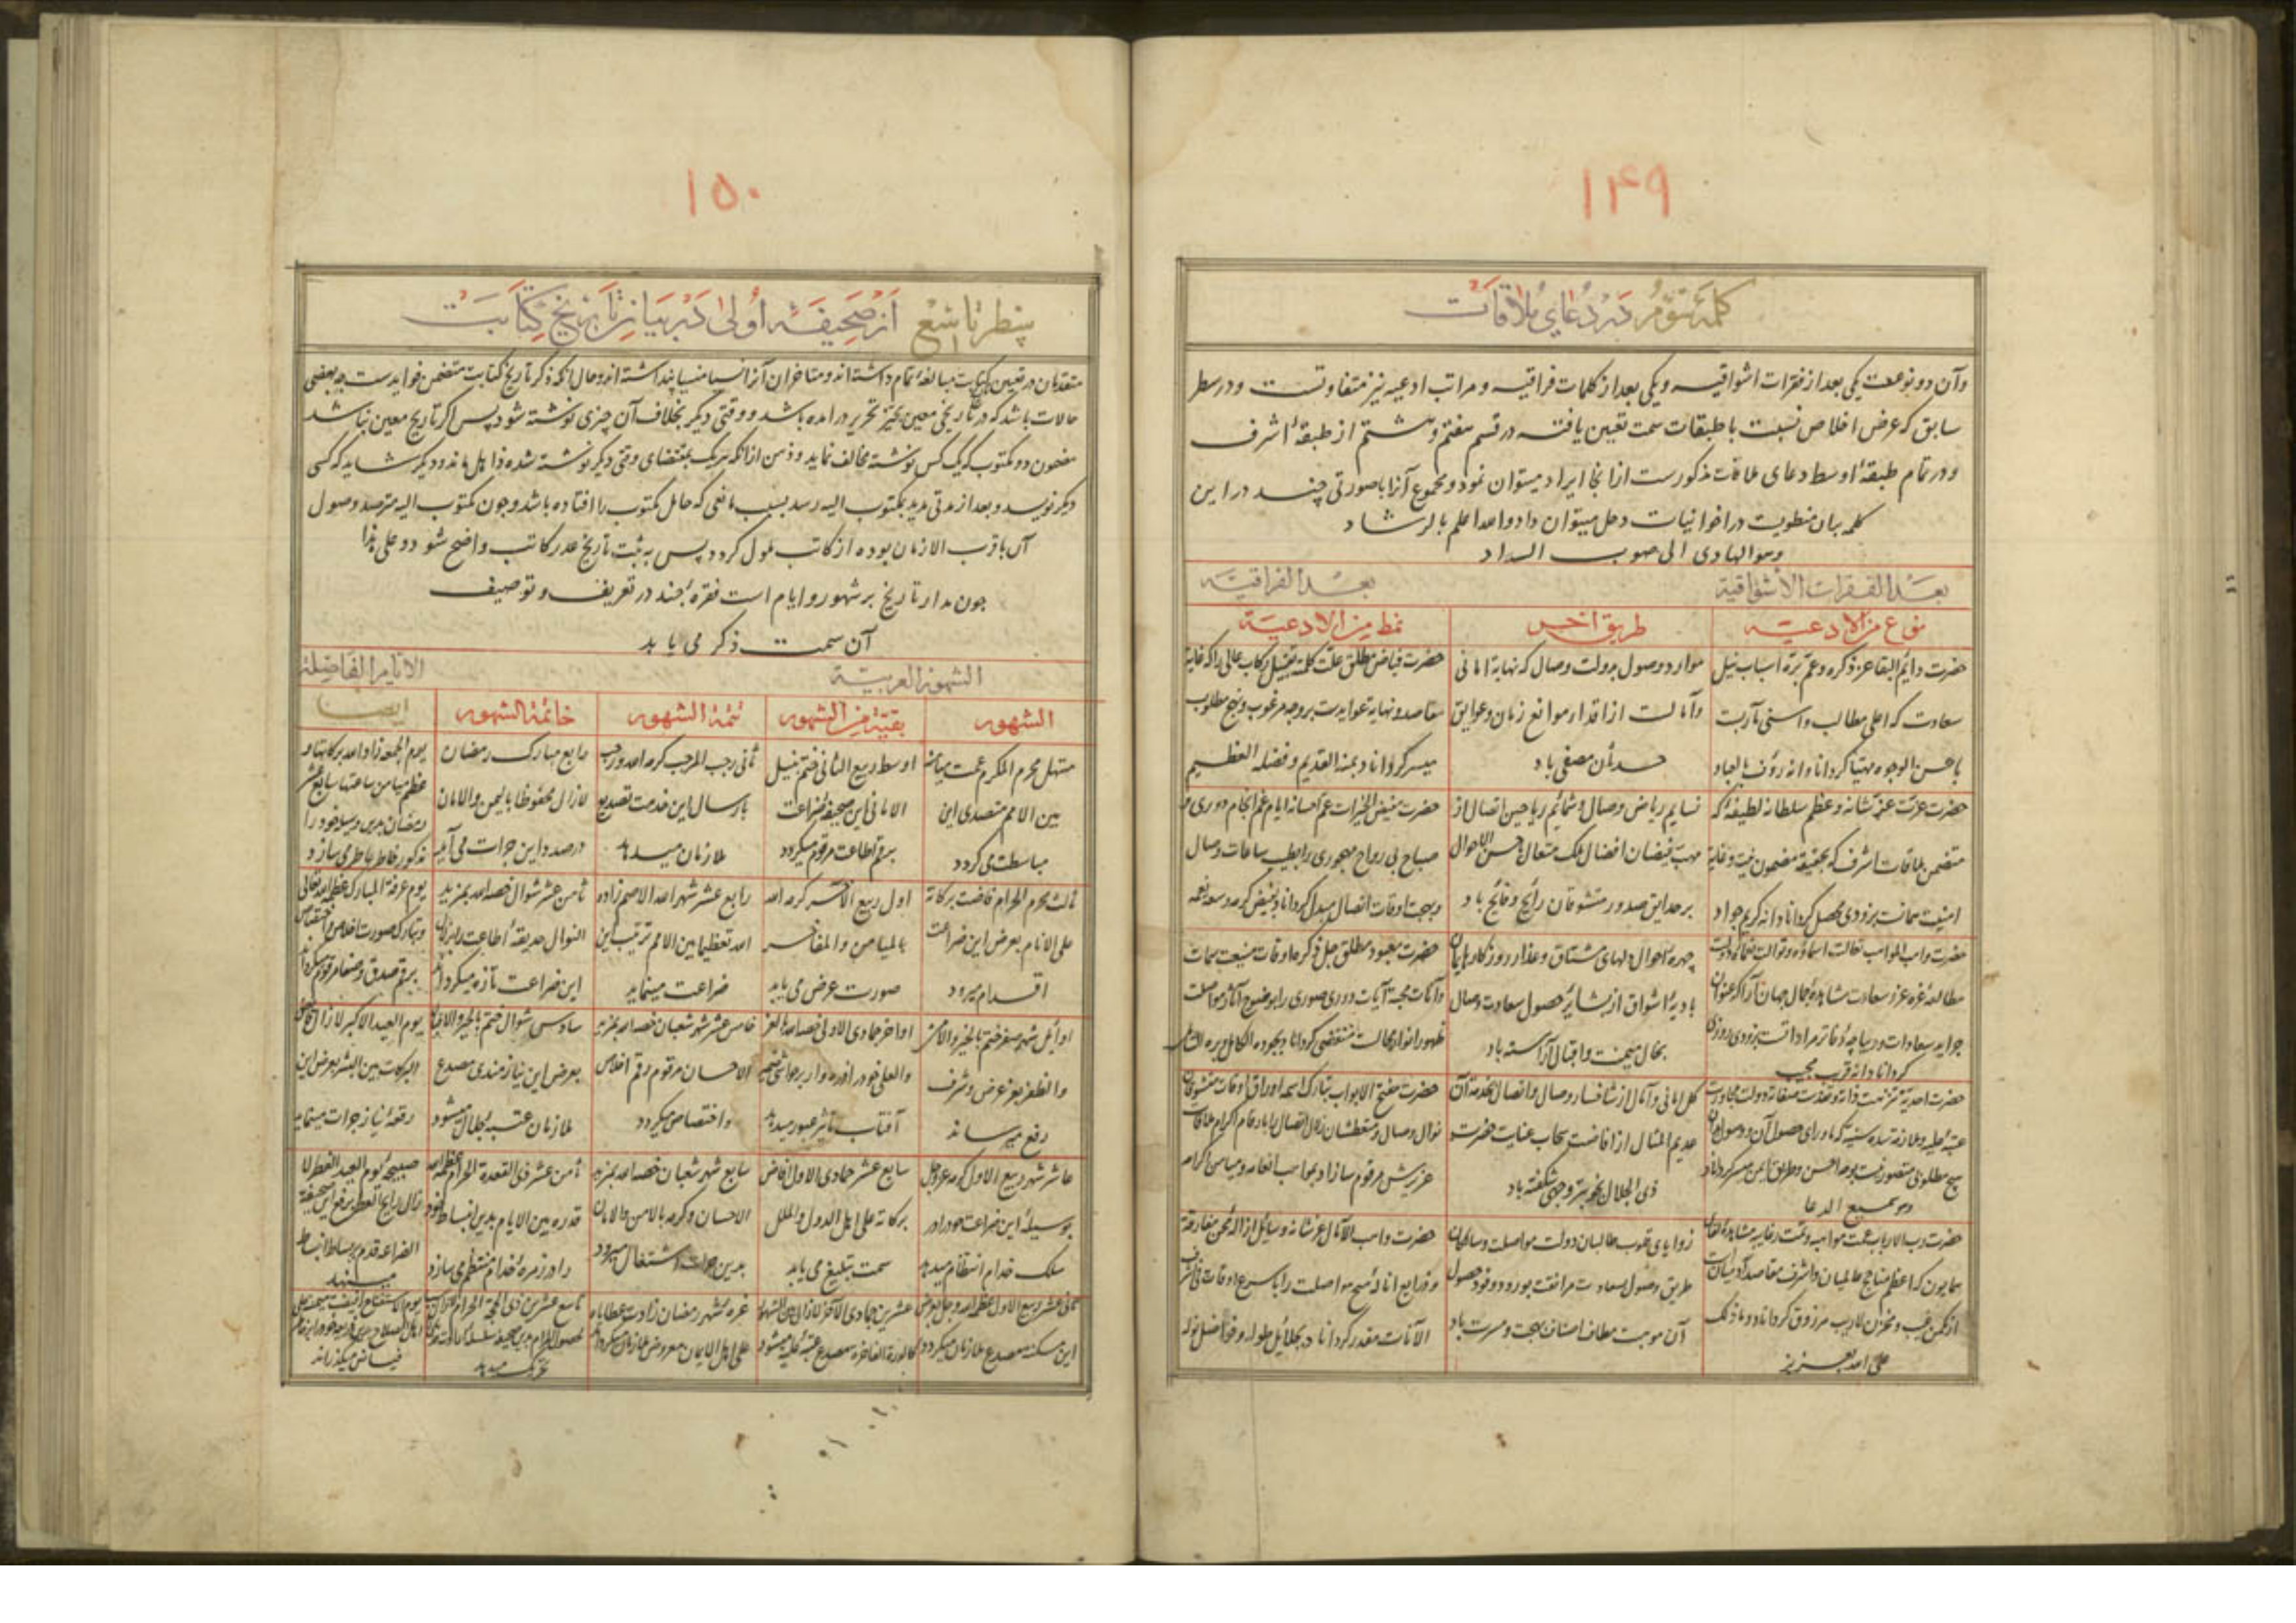 ۱۴۹
کلمه سوم در دعای ملاقات
وآن دو نوعست یکی بعد از فقرات اشواقیه و یکی بعد از کلمات فراقیه و مراتب ادعیه نیز متفاوتست و در سطر
سابق که عرض اخلاص نسبت با طبقات سمت تعیین یافته در قسم هفتم و هشتم از طبقهٔ اشرف
و در تمام طبقهٔ اوسط دعای ملاقات مذکورست از انجا ایراد میتوان نمود و مجموع آنرا با صورتی چند در این
کلمه بیان منطویست در اخوانیات دخل میتوان داد والله اعلم بالرشاد
وهو الهادی الی صوب السداد
بعد الفقرات الاشواقیة
بعد الفراقیة
نوع من الادعیة
طریق اخر
نمط من الادعیة
حضرت دایم البقا عز ذکره وعم بره اسباب نیل
سعادت که اعلی مطالب و اسنی مآربست
باحسن الوجوه مهیا کرداناد انه رؤف بالعباد
موارد وصول بدولت وصال که نهایة امانی
وآمالست از اقذار موانع زمان وعوایق
حدثان مصفی باد
حضرت فیاض مطلق علت کلمته تقبیل رکاب عالی را که غایة
مقاصد ونهایة عوایدست بر وجه مرغوب ونهج مطلوب
میسر کرداناد بمنه القدیم وفضله العظیم
حضرت عزت عمت شانه وعظم سلطانه لطیفهٔ که
متضمن ملاقات اشرف که بحقیقة مضمون نیت وغایة
امنیت همانست بزودی محصل کرداناد انه کریم جواد
نسایم ریاض وصال وشمایم ریاحین اتصال از
مهب فیضان افضال ملک متعال باحسن الاحوال
بر حدایق صدور مشتوقان رایح وفایح باد
حضرت مفیض الخیرات عم احسانه ایام غم انجام دوری و
صباح بی رواح مهجوری را بطیب ساعات وصال
وبهجت اوقات اتصال مبدل کرداناد بفیض کرمه وسعة نعمه
حضرت واهب المواهب تعالت اسماؤه وتوالت نعماؤه دولت
مطالعهٔ غرهٔ غرر سعادت مشاهدهٔ جمال جهان آرا که عنوان
جراید سعادات ودیباچهٔ دفاتر مراداتست بزودی روزی
کرداناد انه قریب مجیب
چهرهٔ احوال دلهای مشتاق وعذار روزکار
بادیهٔ اشواق از بشایر حصول سعادت وصال
بخال میمنت واقبال آراسته باد
حضرت معبود مطلق جل ذکره اوقات
وآنات محنة آیات دوری صوری را بوضوح آثار مواصلت
ظهور انوار مجالست منقضی کرداناد بجوده الکامل وبره الشامل
کل امانی وآمال از شاخسار وصال واتصال بخدمة آن
عدیم المثال از افاضت سحاب عنایت حضرت
ذی الجلال بخوبترین وجهی شکفته باد
حضرت مفتح الابواب تبارک اسمه اوراق اوقات مشتوقان
نوال وصال ومتعطشان زلال اتصال را بارقام اکرام ملاقات
عزیزش مرقوم سازاد بمواهب انعامه ومیامن اکرامه
وهو سمیع الدعا
حضرت رب الارباب عمت مواهبه وتمت رغایبه مشاهدهٔ لقای
همایون که اعظم مناجح عالمیان واشرف مقاصد آدمیان
از مکمن غیب ومخزن لاریب مرزوق کرداناد وما ذلک
علی الله بعزیز
زوایای قلوب طالبان دولت مواصلت وسالکان
طریق وصول سعادت مرافقت بورود وفود حصول
آن موهبت مطاف اصناف بهجت ومسرت باد
حضرت واهب الآمال عز شانه وسایل ازالهٔ محن مفارقة
وذرایع انالهٔ منح مواصلت را باسرع اوقات
الآنات مقدر کرداناد بجلایل طوله وفواضل نوله
۱۵۰
سطر تاسع از صحیفه اولی در بیان تاریخ کتابت
متقدمان در تعیین کتابت مبالغهٔ تمام داشته اند ومتاخران آنرا نسیا منسیا پنداشته اند وحال آنکه ذکر تاریخ کتابت متضمن فوایدست چه بعضی
حالات باشد که در تاریخی معین بحیز تحریر در آمده باشد ووقتی دیکر بخلاف آن چیزی نوشته شود پس اکر تاریخ معین نباشد
مضمون دو مکتوب که یک کس نوشته مخالف نماید وذهن از آنکه هریک بمقتضای وقتی دیکر نوشته شده ذاهل ماند ودیکر شاید که کسی
دیکر نویسد وبعد از مدتی مدید بمکتوب الیه رسد بسبب مانعی که حامل مکتوب را افتاده باشد وچون مکتوب الیه مترصد وصول
آن باقرب الازمان بوده از کاتب ملول کردد پس به ثبت تاریخ عذر کاتب واضح شود وعلی هذا
چون مدار تاریخ بر شهور وایام است فقرهٔ چند در تعریف وتوصیف
آن سمت ذکر می یابد
الشهور العربیة
الایام الفاضلة
الشهور
بقیة من الشهور
تتمة الشهور
خاتمة الشهور
ایضا
مستهل محرم المکرم عمت میامنه
بین الامم متصدی این
مباسطت می کردد
اوسط ربیع الثانی ختم بنیل
الامانی این صحیفهٔ ضراعت
برقم اطاعت مرقوم میکردد
ثانی رجب المرجب کرمه الله ورجب
بارسال این خدمت تصدیع
ملازمان میدهد
رابع مبارک رمضان
لازال محفوظا بالیمن والامان
درصدد این جرات می آید
یوم الجمعه زاد الله برکاتها و
عظم میامن ساعاتها سابع عشر
رمضان بدین وسیله خود را
مذکور خاطر عاطر می سازد
ثالث محرم الحرام فاضت برکاته
علی الانام بعرض این ضراعت
اقدام میرود
اول ربیع الآخر کرمه الله
بالمیامن والمفاخر
صورت عرض می یابد
رابع عشر شهر الله الاصم زاده
الله تعظیما بین الامم ترتیب این
ضراعت مینماید
ثامن عشر شوال خصه الله بمزید
النوال حدیقهٔ اطاعت را بزلال
این ضراعت تازه میکرداند
یوم عرفة المبارک عظمه الله تعالی
وتبارک صورت اخلاص واختصاص
برقم صدق وصفا مرقوم میکرداند
اوایل شهر صفر ختم بالخیر والظفر
والظفر بعز عرض وشرف
رفع میرساند
اواخر جمادی الاولی خصه الله بالعز
والعلی خود را ذره وار بر حواشی ضمیر
آفتاب تاثیر عبور میدهد
خامس عشر شهر شعبان خصه الله بمزید
الاحسان مرقوم رقم اخلاص
واختصاص میکردد
سادس شوال ختم بالخیر والاقبال
بعرض این نیازمندی مصدع
ملازمان عتبهٔ جلال میشود
یوم العید الاکبر لازال فایض
البرکات بین البشر بعرض این
رقعهٔ نیاز جرات مینماید
عاشر شهر ربیع الاول کرمه الله عز وجل
بوسیلهٔ این ضراعت خود را در
سلک خدام انتظام میدهد
سابع عشر جمادی الاول فاض
برکاته علی اهل الدول والملل
سمت تبلیغ می یابد
سابع شهر شعبان خصه الله بمزید
الاحسان وکرمه بالامن والامان
بدین جرات اشتغال میرود
ثامن عشر ذی القعدة الحرام عظمه الله
قدره بین الایام بدین انبساط خود
را در زمرهٔ خدام منتظم می سازد
صبیحهٔ یوم العید الفطر لا
زال رایح العطر برفع این صحیفة
الضراعه قدم بر بساط انبساط
مینهد
ثانی عشر ربیع الاول عظمه الله وجل بعرض
این مسکنه مصدع ملازمان میکردد
عشرین جمادی الآخر لازال بین الشهور
کالبدر الفاخره مصدع عتبهٔ علیه میشود
غرهٔ شهر رمضان زادت عطایاه
علی اهل الایمان معروض ملازمان میکرداند
تاسع عشرین ذی الحجة الحرام
تحریک میدهد
یوم الاستفتاح
فیاض میکذراند